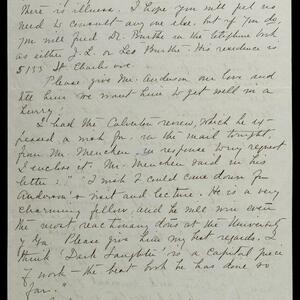 there is illness. I hope you will feel no
need to consult any one else, but if you do,
you will find Dr. Burthe in the telephone book
as either J. L. or Leo Burthe. His residence is
5133 St Charles ave.
Please give Mr. Anderson our love and
tell him we want him to get well in a
hurry.
I had the Calverton review, which he ex-
pressed a wish for, in the mail tonight,
from Mr. Mencken in response to my request
I enclose it. Mr. Mencken said in his
letter: "I wish I could come down for
Anderson's visit and lecture. He is a very
charming fellow and he will win even
the most reactionary dons at the University
of Ga. Please give him my best regards. I
think 'Dark Laughter' is a capital piece
of work – the best book he has done so
far."